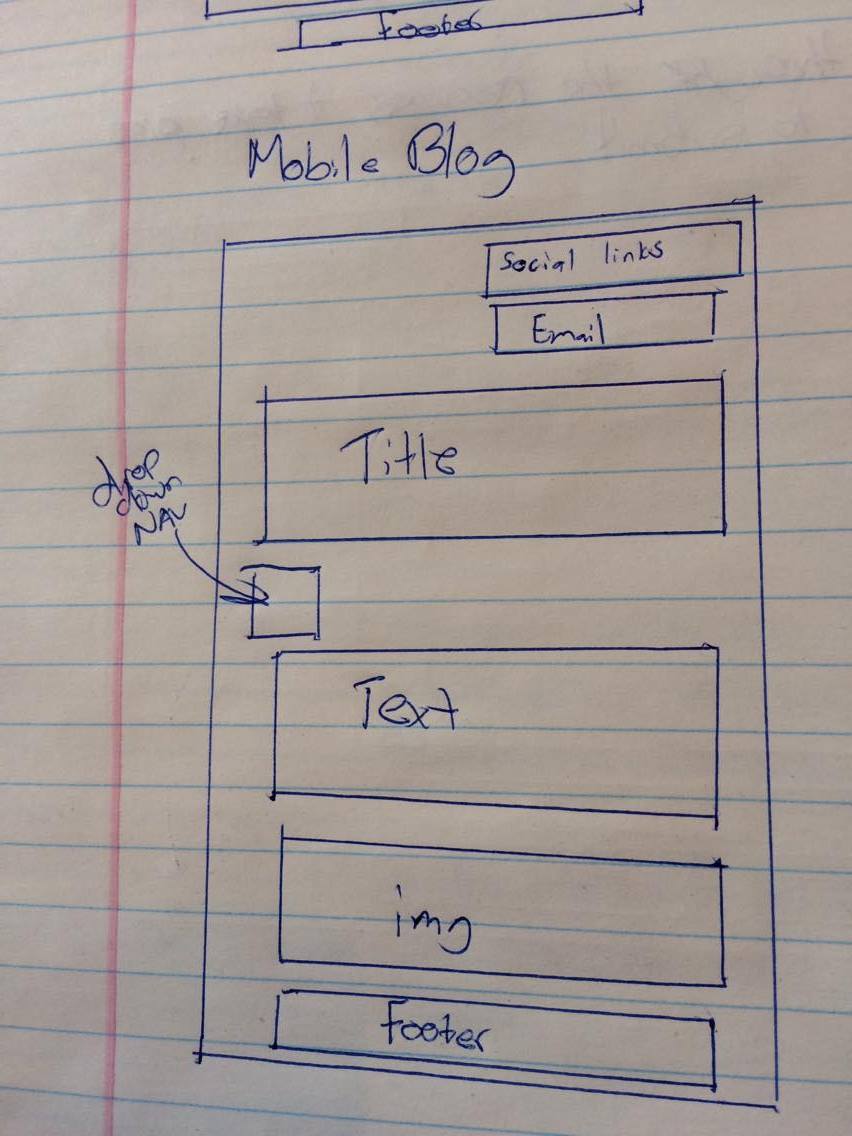 Footer
Mobile Blog
Social links
Email
Title
drop
down
NAV
Text
img
Footer